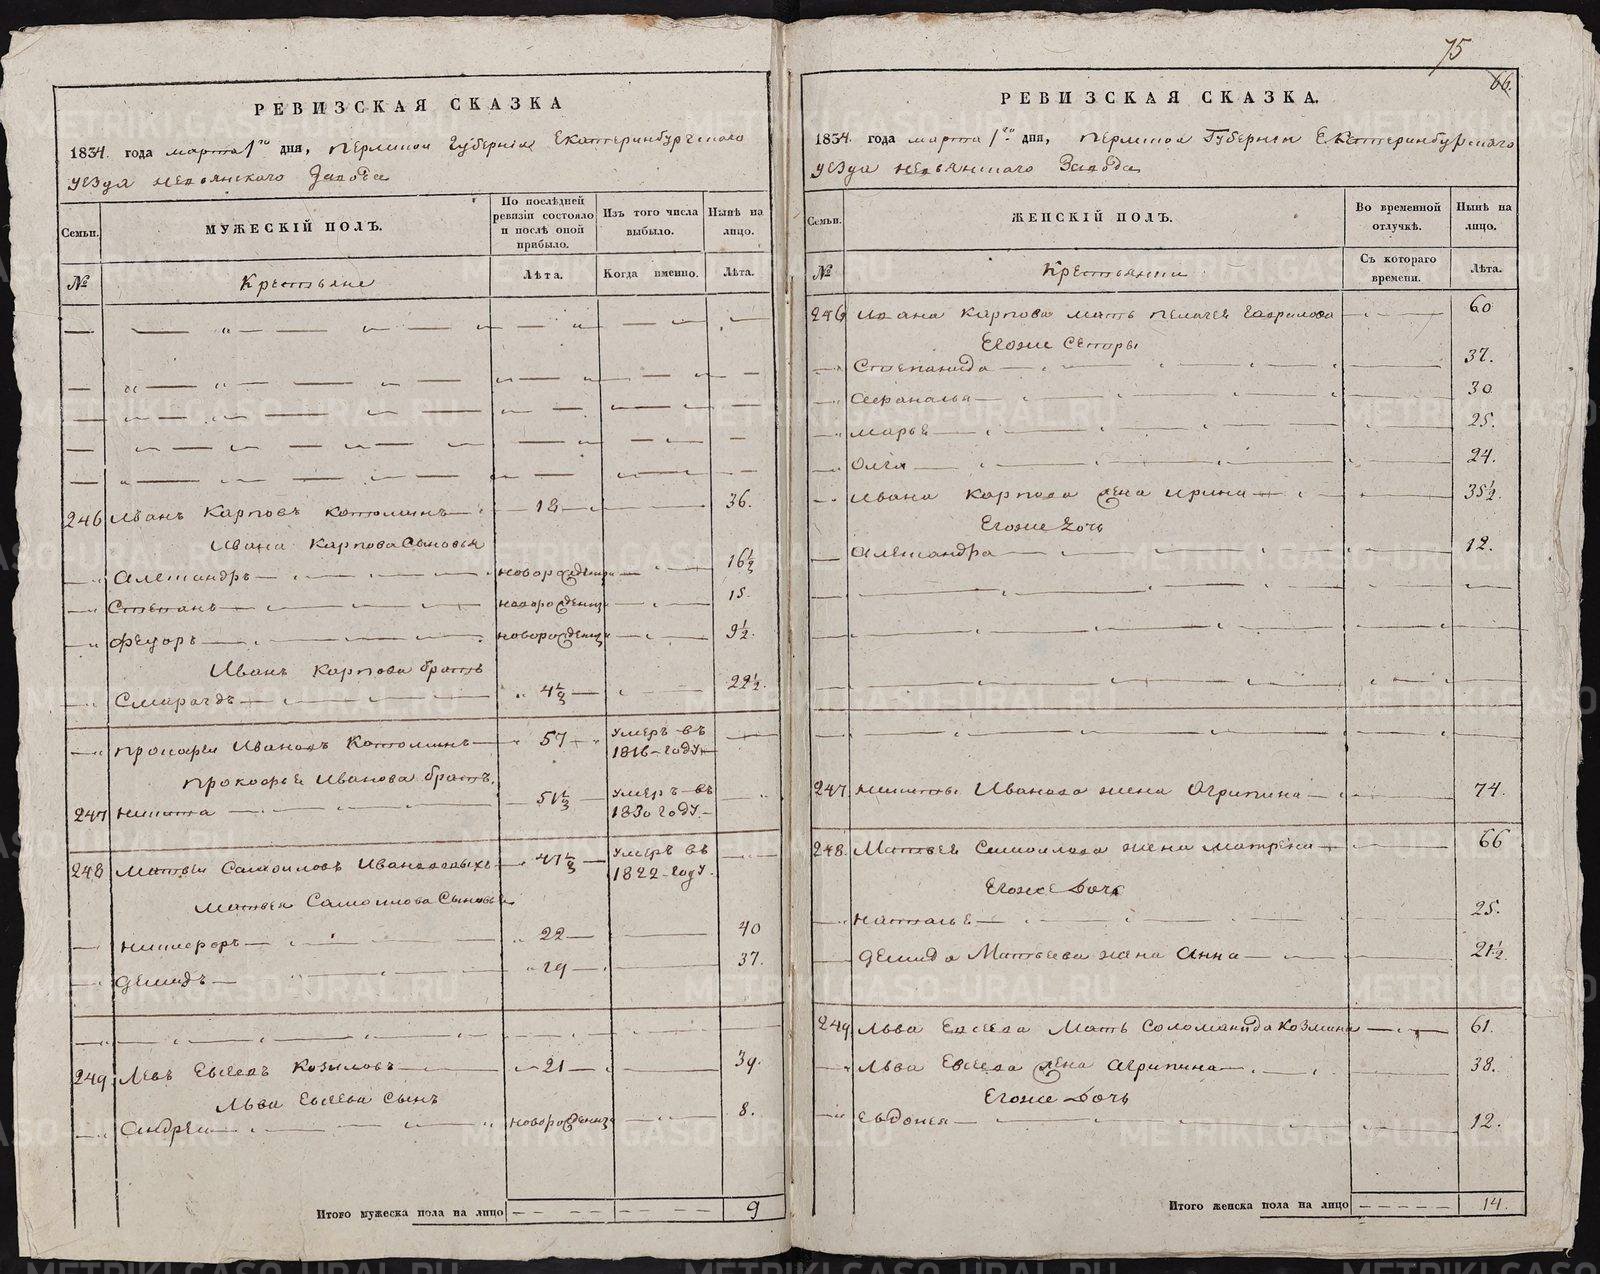 75
66.
РЕВИЗСКАЯ СКАЗКА
1834. года марта 1го дня, Пермской Губернiи Екатеринбургскаго
уезда Невьянскаго Завода
Семьи.
МУЖЕСКІЙ ПОЛЪ.
По послѣдней ревизіи состояло и послѣ оной прибыло.
Изъ того числа выбыло.
Нынѣ на лицо.
№
Крестьяне
Лѣта.
Когда именно.
Лѣта.
246 Иванъ Карповъ 18 36.
Ивана Карпова Сыновья
Александръ новорожденны 16½
Степанъ новорожденны 15.
Федоръ новорожденны 9½.
Иванъ Карпова братъ
Смарагдъ 4½ 22½.
Прокофеи Ивановъ 57 умеръ въ 1816 году
Прокофья Иванова братъ.
247 Никита 51½ умеръ въ 1830 году
248 Матвеи Самоиловъ 47½ умеръ въ 1822 году.
Матвея Самоилова Сыновья
Никифоръ 22 40
Демидъ 19 37.
249 Левъ Евсеевъ Козиловъ 21 39.
Льва Евсеева Сынъ
Андреи новорожденны 8.
Итого мужеска пола на лицо 9
РЕВИЗСКАЯ СКАЗКА.
1834. года марта 1го дня, Пермской Губернiи Екатеринбургскаго
уезда Невьянскаго Завода
Семьи.
ЖЕНСКІЙ ПОЛЪ.
Во временной отлучкѣ.
Нынѣ на лицо.
№
Крестьянки
Съ котораго времени.
Лѣта.
246 Ивана Карпова мать Пелагея Гаврилова 60
Егоже Сестры
Степанида 37.
Афанасья 30
Марья 25.
Олга 24.
Ивана Карпова жена Ирина 35½.
Егоже дочь
Александра 12.
247 Никиты Иванова жена Огрипина 74.
248. Матвея Самоилова жена Матрена 66
Егоже Дочь
Наталья 25.
Демида Матвеева жена Анна 21½.
249 Льва Евсеева Мать Соломанида Козмина 61.
Льва Евсеева жена Агрипина 38.
Егоже Дочь
Евдокея 12.
Итого женска пола на лицо 14.
METRIKI.GASO-URAL.RU